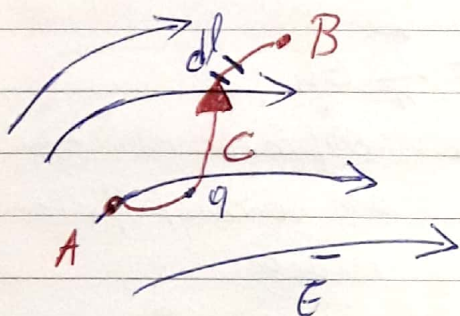 dl
B
C
q
A
E